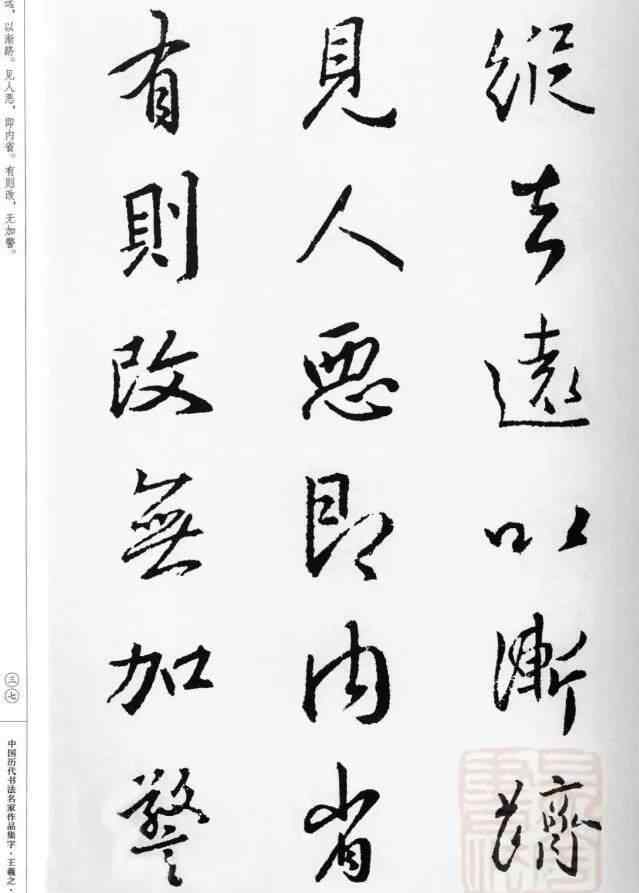 縱去遠以漸躋
見人惡即內省
有則改無加警
远，以渐跻。见人恶，即内省。有则改，无加警。
三七
中国历代书法名家作品集字·王羲之·